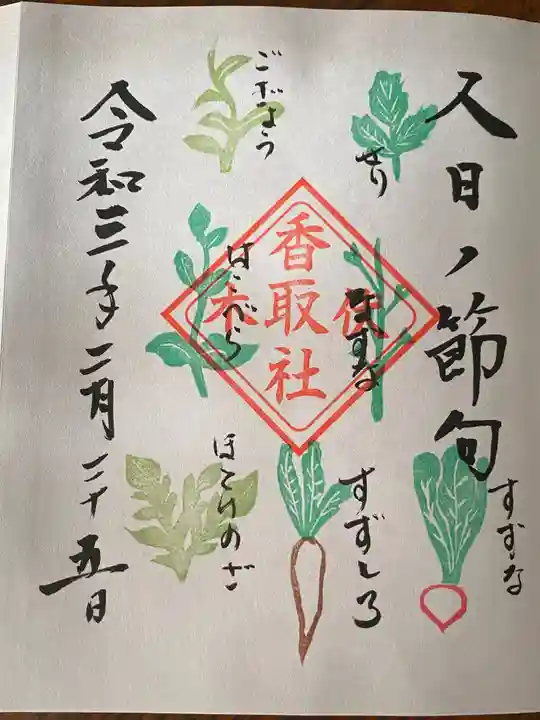 人日ノ節句
せり
なずな
すずな
ごぎょう
香取社
はこべら
すずしろ
ほとけのざ
令和三年二月二十五日